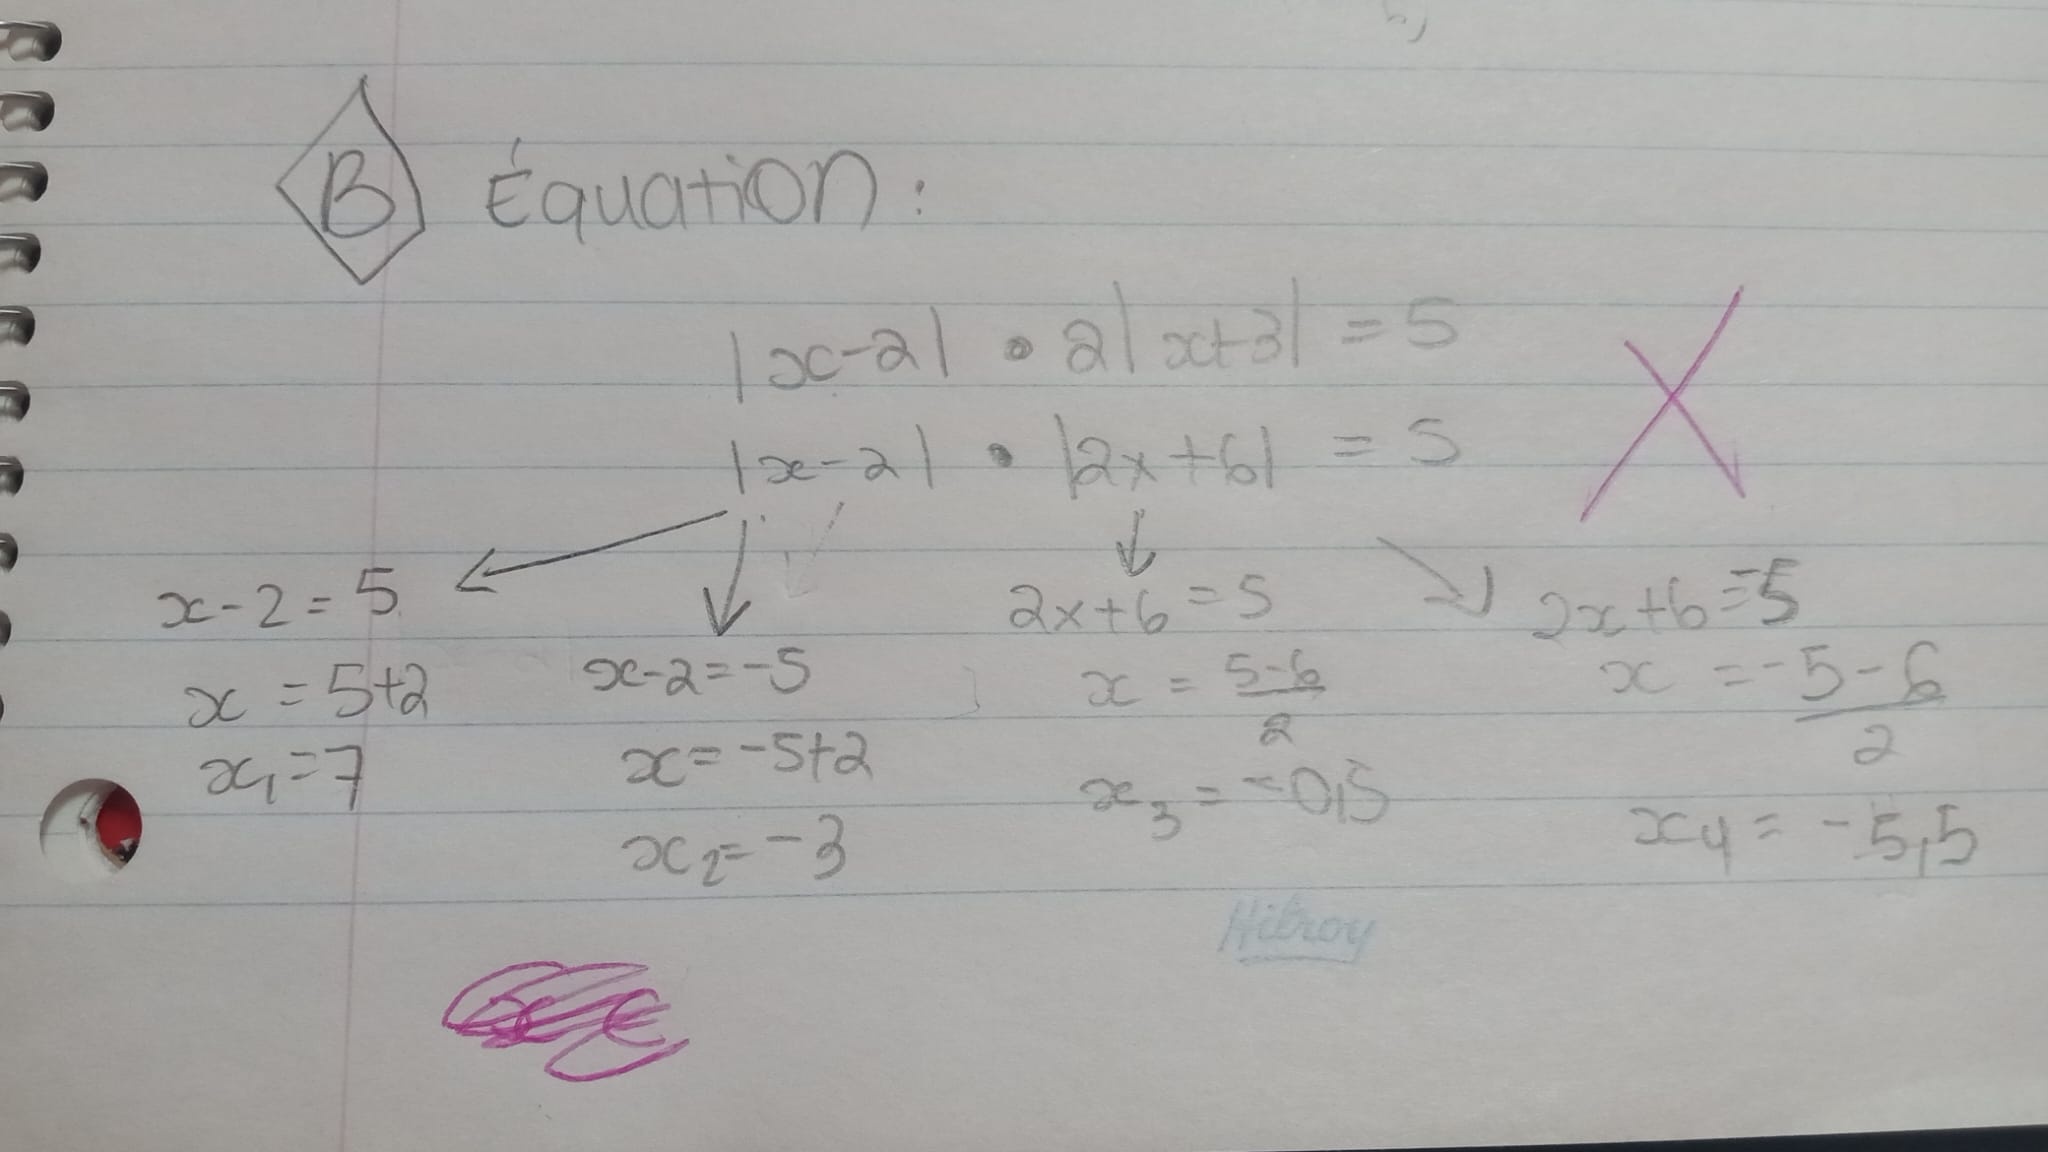 B Équation :
|x-2| • 2|x+3| = 5
|x-2| • |2x+6| = 5
x-2=5
x=5+2
x₁=7
x-2=-5
x=-5+2
x₂=-3
2x+6=5
x = 5-6
2
x₃=-0,5
2x+6=-5
x = -5-6
2
x₄ = -5,5
Hilroy